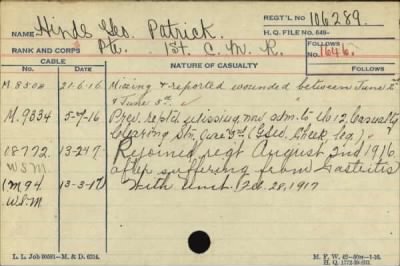 NAME Hinds Geo. Patrick. REGT'L No 106289.
H. Q. FILE No. 649-
RANK AND CORPS Pte. 1st. C. M. R. FOLLOWS
No. 1646.
CABLE NATURE OF CASUALTY FOLLOWS
No. DATE
M.8508 21-6-16 Missing & reported wounded between June 2nd
& June 5th.
M.9334 5-7-16 Prev. reptd missing now adm. to No 12, Casualty
Clearing Stn. June 3rd (Gsw. cheek leg)
18772 13-2-17 Rejoined regt August 2nd 1916
W.S.M. after suffering from Gastritis
M94 13-3-17 With Unit. Feb. 28, 1917
W.S.M
L. L. Job 90581-M. & D. 6234. M. F. W. 42-50m-1-16.
H. Q. 1772-39-893.